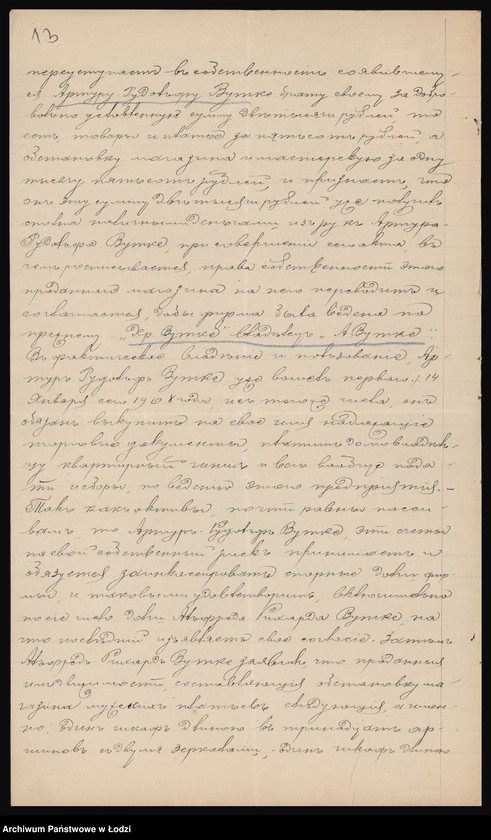 13
переуступаетъ въ собственность явившему-
ся Артуру Рудольфу Вутке брату своему за добро-
вольно условленную сумму двѣ тысячи рублей, то
есть, товары и платье за пятьсотъ рублей, а
обстановку магазина и мастерскую за одну
тысячу пятьсотъ рублей, и признаетъ, что
онъ эту сумму двѣ тысячи рублей уже получилъ
сполна наличными деньгами, изъ рукъ Артура-
Рудольфа Вутке, при совершеніи сего акта, въ
чемъ росписывается, права собственности этого
проданнаго магазина на него переводитъ и
соглашается, дабы фирма была ведена по
прежнему „Фер. Вутке" владѣлецъ „А Вутке".
Въ фактическое владѣніе и пользованіе, Ар-
туръ Рудольфъ Вутке уже вошелъ перваго / 14
Января сего 1908 года, и съ того числа, онъ
обязанъ выкупить на свое имя надлежащіе
торговые документы, платить домовладѣль-
цу квартирный чиншъ и всѣ вообще пода-
ти и сборы, по веденію этого предпріятія. –
Такъ какъ активы, почти равны пасси-
вамъ, то Артуръ-Рудольфъ Вутке, эти счеты
на свой собственный рискъ принимаетъ и
обязуется заинкассировать спорные долги фир-
мы, и таковыми удовлетворить,
после чего долги Альфреда Рихарда Вутке, на
что послѣдній изъявляетъ свое согласіе. Затѣмъ
Альфредъ-Рихардъ Вутке заявилъ, что проданныя
имъ движимости, составляющія обстановку ма-
газина мужскихъ платьевъ слѣдующія, а имен-
но: одинъ шкафъ длиною въ тринадцать ар-
шиновъ съ двумя зеркалами, – одинъ шкафъ длиною
Archiwum Państwowe w Łodzi